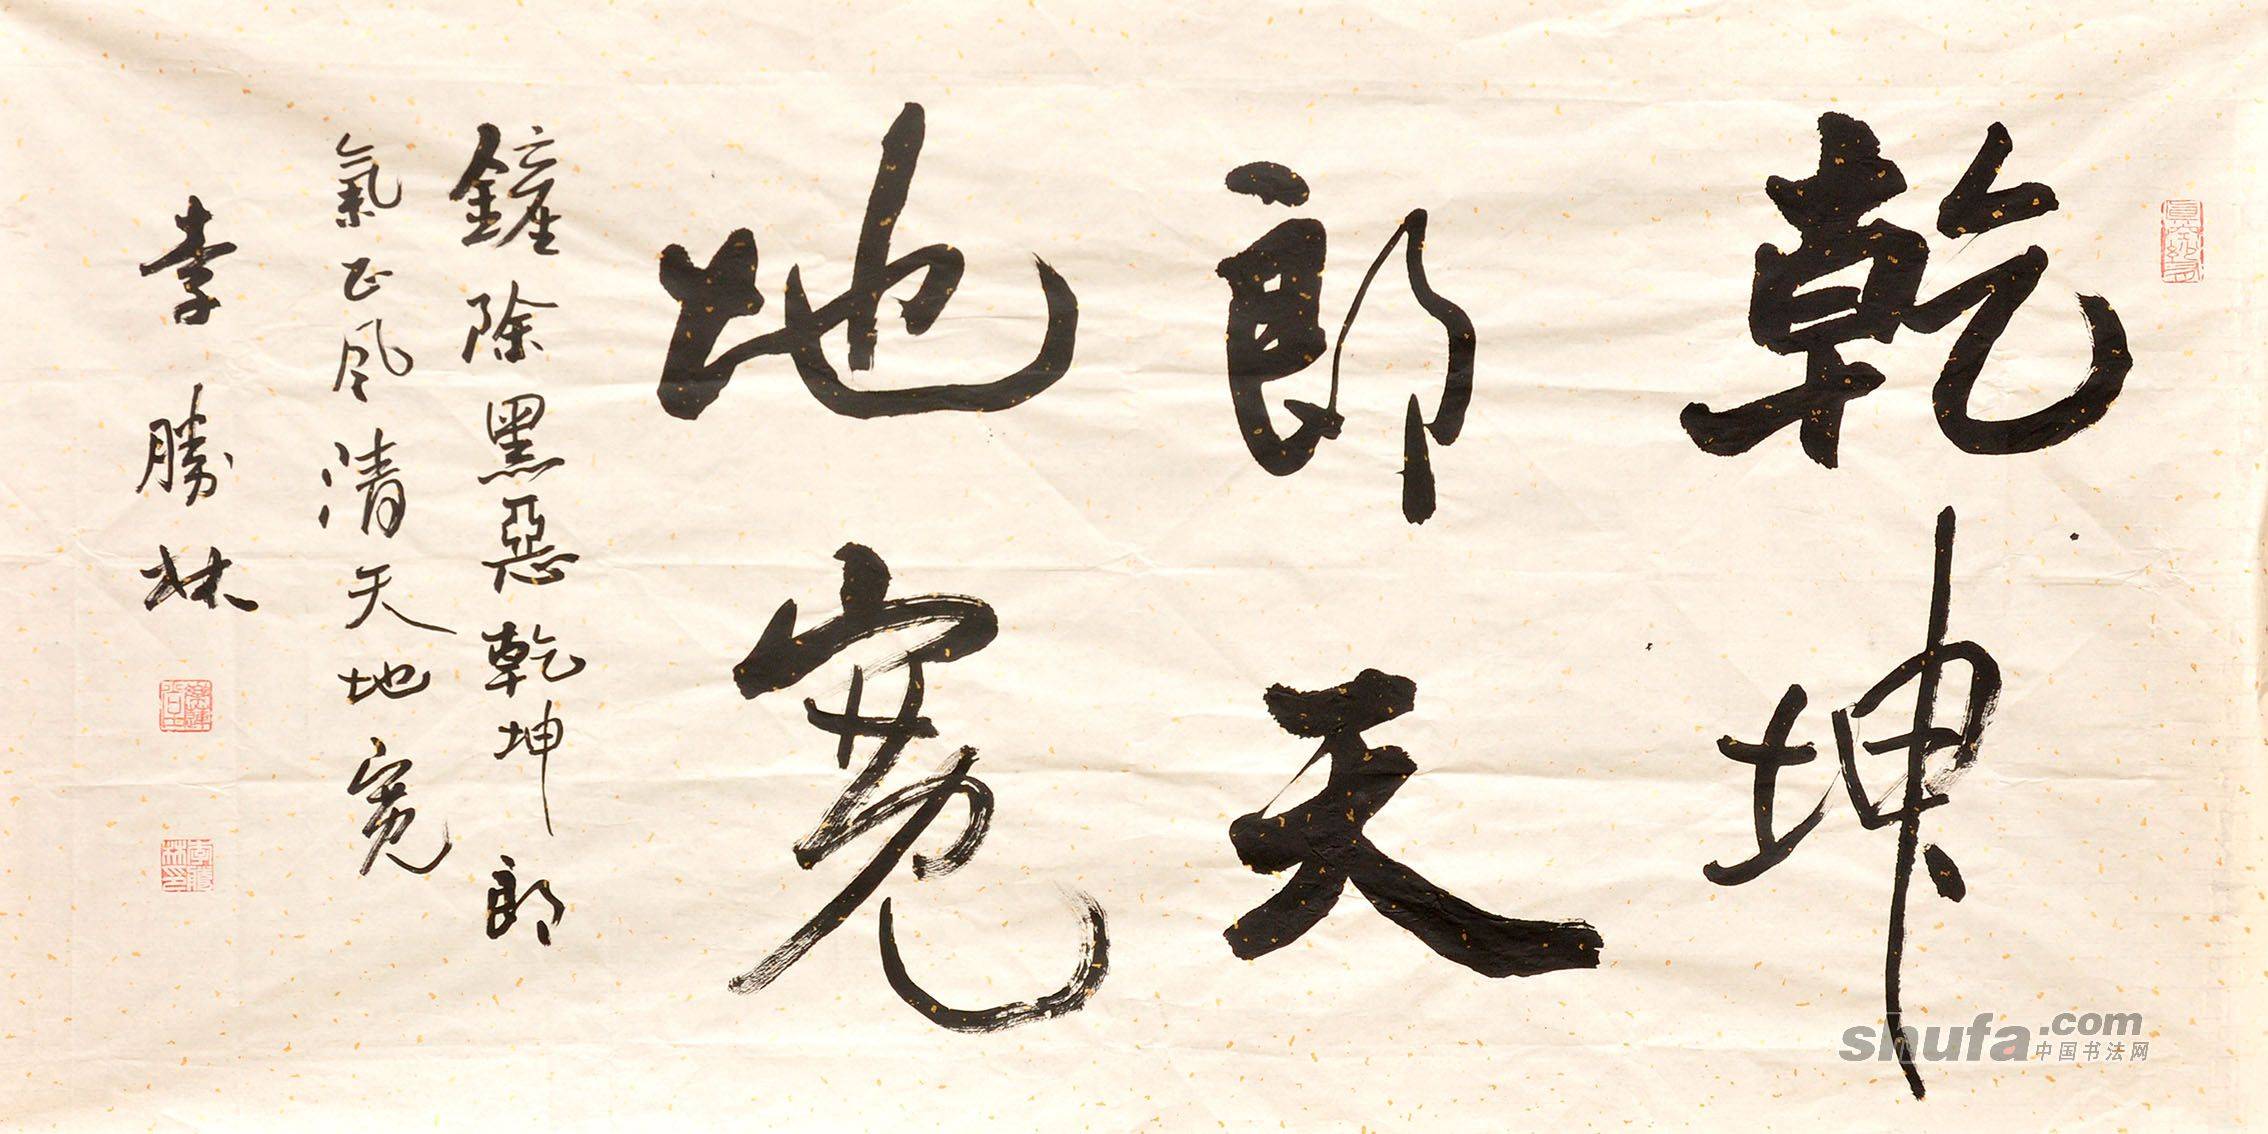 乾坤
郎天
地寬
鏟除黑惡乾坤郎
氣正風清天地寬
李勝林
李勝林印
shufa.com
中国书法网